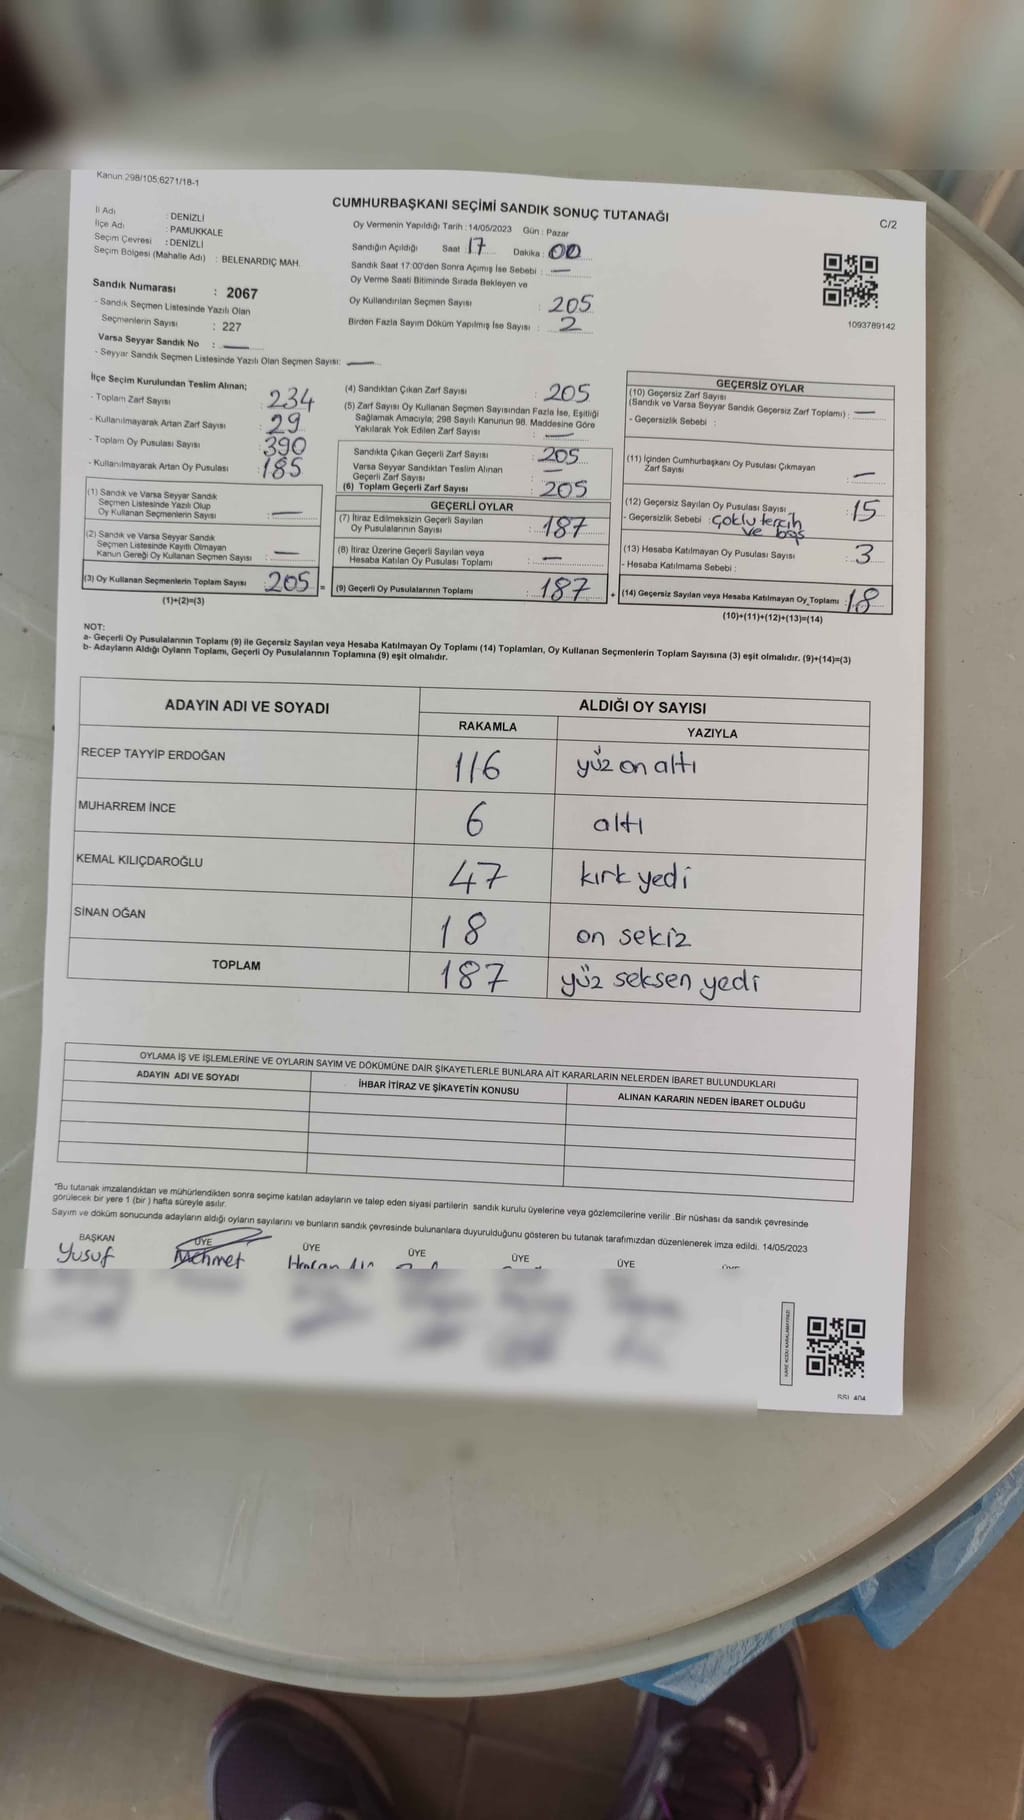 Kanun 298/105;6271/18-1
CUMHURBAŞKANI SEÇİMİ SANDIK SONUÇ TUTANAĞI
C/2
İl Adı : DENİZLİ
İlçe Adı : PAMUKKALE
Seçim Çevresi : DENİZLİ
Seçim Bölgesi (Mahalle Adı) : BELENARDIÇ MAH.
Oy Vermenin Yapıldığı Tarih : 14/05/2023 Gün : Pazar
Sandığın Açıldığı Saat : 17 Dakika : 00
Sandık Saat 17:00'den Sonra Açımış İse Sebebi : —
Oy Verme Saati Bitiminde Sırada Bekleyen ve
Oy Kullandırılan Seçmen Sayısı : 205
Birden Fazla Sayım Döküm Yapılmış İse Sayısı : 2
1093789142
Sandık Numarası : 2067
- Sandık Seçmen Listesinde Yazılı Olan
Seçmenlerin Sayısı : 227
Varsa Seyyar Sandık No : —
- Seyyar Sandık Seçmen Listesinde Yazılı Olan Seçmen Sayısı: —
İlçe Seçim Kurulundan Teslim Alınan;
- Toplam Zarf Sayısı : 234
- Kullanılmayarak Artan Zarf Sayısı : 29
- Toplam Oy Pusulası Sayısı : 390
- Kullanılmayarak Artan Oy Pusulası : 185
(1) Sandık ve Varsa Seyyar Sandık
Seçmen Listesinde Yazılı Olup
Oy Kullanan Seçmenlerin Sayısı : —
(2) Sandık ve Varsa Seyyar Sandık
Seçmen Listesinde Kayıtlı Olmayan
Kanun Gereği Oy Kullanan Seçmen Sayısı : —
(3) Oy Kullanan Seçmenlerin Toplam Sayısı : 205 =
(1)+(2)=(3)
(4) Sandıktan Çıkan Zarf Sayısı : 205
(5) Zarf Sayısı Oy Kullanan Seçmen Sayısından Fazla İse, Eşitliği
Sağlamak Amacıyla; 298 Sayılı Kanunun 98. Maddesine Göre
Yakılarak Yok Edilen Zarf Sayısı : —
Sandıkta Çıkan Geçerli Zarf Sayısı : 205
Varsa Seyyar Sandıktan Teslim Alınan
Geçerli Zarf Sayısı : —
(6) Toplam Geçerli Zarf Sayısı : 205
GEÇERLİ OYLAR
(7) İtiraz Edilmeksizin Geçerli Sayılan
Oy Pusulalarının Sayısı : 187
(8) İtiraz Üzerine Geçerli Sayılan veya
Hesaba Katılan Oy Pusulası Toplamı : —
(9) Geçerli Oy Pusulalarının Toplamı : 187 +
GEÇERSİZ OYLAR
(10) Geçersiz Zarf Sayısı
(Sandık ve Varsa Seyyar Sandık Geçersiz Zarf Toplamı) : —
- Geçersizlik Sebebi :
(11) İçinden Cumhurbaşkanı Oy Pusulası Çıkmayan
Zarf Sayısı : —
(12) Geçersiz Sayılan Oy Pusulası Sayısı : 15
- Geçersizlik Sebebi : çoklu tercih
ve boş
(13) Hesaba Katılmayan Oy Pusulası Sayısı : 3
- Hesaba Katılmama Sebebi :
(14) Geçersiz Sayılan veya Hesaba Katılmayan Oy Toplamı : 18
(10)+(11)+(12)+(13)=(14)
NOT:
a- Geçerli Oy Pusulalarının Toplamı (9) ile Geçersiz Sayılan veya Hesaba Katılmayan Oy Toplamı (14) Toplamları, Oy Kullanan Seçmenlerin Toplam Sayısına (3) eşit olmalıdır. (9)+(14)=(3)
b- Adayların Aldığı Oyların Toplamı, Geçerli Oy Pusulalarının Toplamına (9) eşit olmalıdır.
ADAYIN ADI VE SOYADI ALDIĞI OY SAYISI
RAKAMLA YAZIYLA
RECEP TAYYİP ERDOĞAN 116 yüz on altı
MUHARREM İNCE 6 altı
KEMAL KILIÇDAROĞLU 47 kırk yedi
SİNAN OĞAN 18 on sekiz
TOPLAM 187 yüz seksen yedi
OYLAMA İŞ VE İŞLEMLERİNE VE OYLARIN SAYIM VE DÖKÜMÜNE DAİR ŞİKAYETLERLE BUNLARA AİT KARARLARIN NELERDEN İBARET BULUNDUKLARI
ADAYIN ADI VE SOYADI İHBAR İTİRAZ VE ŞİKAYETİN KONUSU ALINAN KARARIN NEDEN İBARET OLDUĞU
"Bu tutanak imzalandıktan ve mühürlendikten sonra seçime katılan adayların ve talep eden siyasi partilerin sandık kurulu üyelerine veya gözlemcilerine verilir .Bir nüshası da sandık çevresinde
görülecek bir yere 1 (bir ) hafta süreyle asılır.
Sayım ve döküm sonucunda adayların aldığı oyların sayılarını ve bunların sandık çevresinde bulunanlara duyurulduğunu gösteren bu tutanak tarafımızdan düzenlenerek imza edildi. 14/05/2023
BAŞKAN ÜYE ÜYE ÜYE ÜYE ÜYE
Yusuf Mehmet